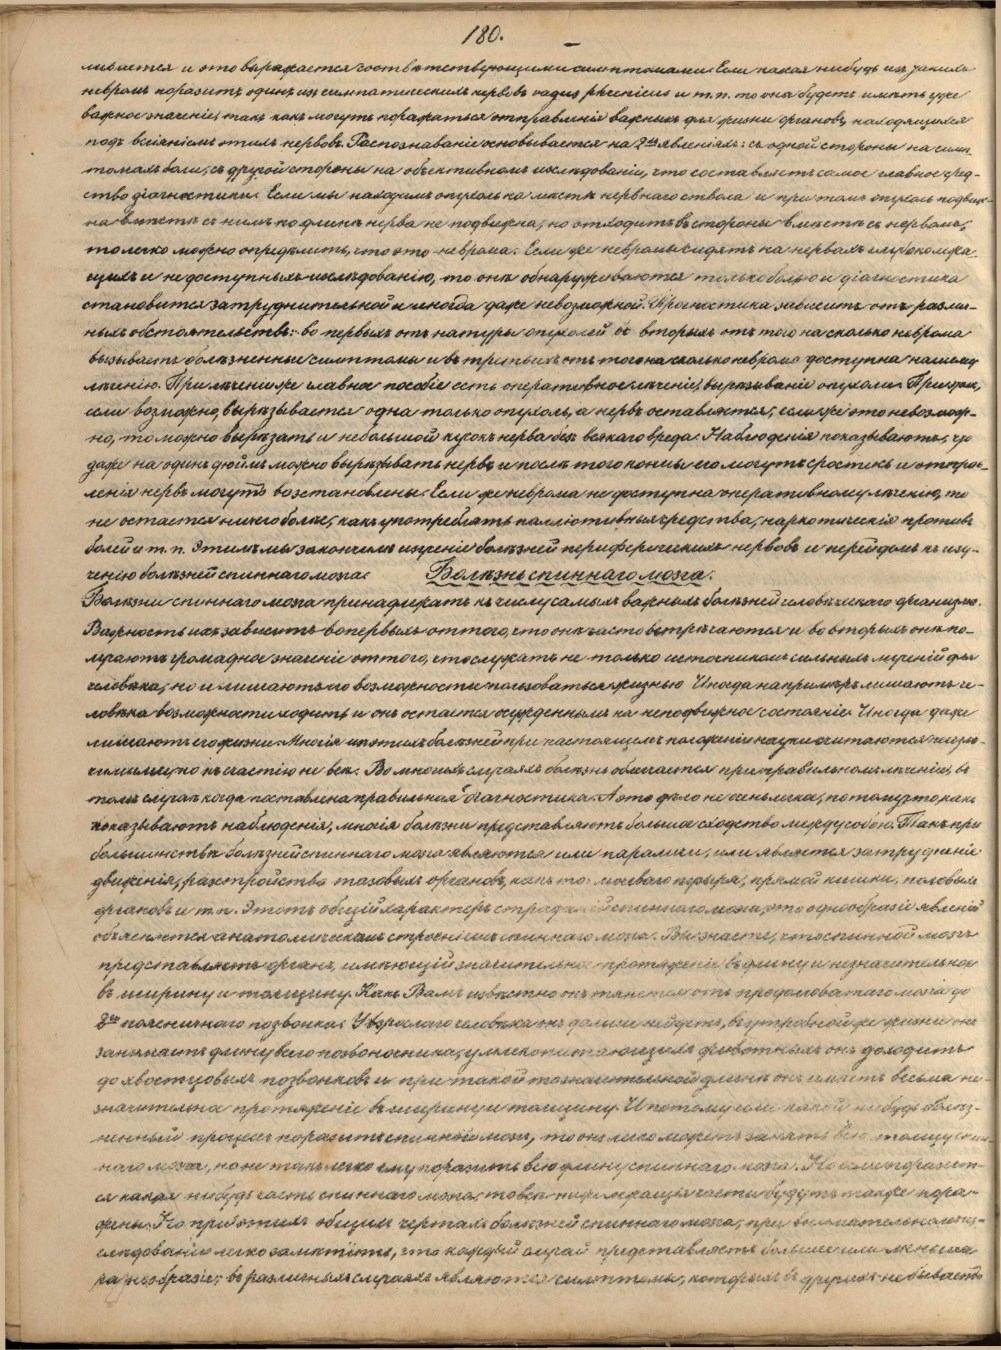 180.
ливается и это выражается соотвѣтствующими симптомами. Если какая нибудь изъ такихъ
невромъ поразитъ одинъ изъ симпатическихъ нервовъ vagus phrenicus и т. п. то она будетъ имѣть уже
важное значеніе, такъ какъ могутъ поражаться отправленія важныхъ для жизни органовъ, находящихся
подъ вліяніемъ этихъ нервовъ. Распознаваніе основывается на 2хъ явленіяхъ: съ одной стороны на симп-
томахъ боли, съ другой стороны на объективномъ изслѣдованіи, что составляетъ самое главное сред-
ство діагностики. Если мы находимъ опухоль на мѣстѣ нервнаго ствола и при томъ опухоль подвиж-
на вмѣстѣ съ нимъ по длинѣ нерва не подвижна, но отходитъ въ стороны вмѣстѣ съ нервомъ,
то легко можно опредѣлить, что это неврома. Если же невромы сидятъ на нервахъ глубоколежа-
щихъ и недоступныхъ изслѣдованію, то онѣ обнаруживаются только болью и діагностика
становится затруднительной и иногда даже невозможной. Прогностика зависитъ отъ различ-
ныхъ обстоятельствъ: во первыхъ отъ натуры опухолей въ вторыхъ отъ того на сколько неврома
вызываетъ болѣзненные симптомы и въ третьихъ отъ того на сколько неврома доступна нашему
лѣченію. При лѣченіи же главное пособіе есть оперативное лѣченіе, вырѣзываніе опухоли. При этомъ,
если возможно, вырѣзывается одна только опухоль, а нервъ оставляется, если же это невозмож-
но, то можно вырѣзать и небольшой кусокъ нерва безъ всякаго вреда. Наблюденія показываютъ, что
даже на одинъ дюймъ можно вырѣзывать нервъ и послѣ того концы его могутъ срастись и отправ-
ленія нервъ могутъ возстановлены. Если же неврома не доступна оперативному лѣченію, то
не остается ничего болѣе, какъ употреблять палліативныя средства, наркотическія противъ
болей и т. п. Этимъ мы закончимъ изученіе болѣзней периферическихъ нервовъ и перейдемъ къ изу-
ченію болѣзней спиннаго мозга. Болѣзнь спиннаго мозга.
Болѣзни спиннаго мозга принадлежатъ къ числу самыхъ важныхъ болѣзней человѣческаго организма.
Важность ихъ зависитъ во первыхъ оттого, что онѣ часто встрѣчаются и во вторыхъ онѣ по-
лучаютъ громадное значеніе оттого, что служатъ не только источникомъ сильныхъ мученій для
человѣка, но и лишаютъ его возможности пользоваться жизнью. Иногда напримѣръ лишаютъ че-
ловѣка возможности ходить и онъ остается осужденнымъ на неподвижное состояніе. Иногда даже
лишаютъ его жизни. Многія изъ этихъ болѣзней при настоящемъ положеніи науки считаются неизлѣ-
чимыми, но къ счастію не всѣ. Во многихъ случаяхъ болѣзнь облегчается при правильномъ лѣченіи, въ
томъ случаѣ когда поставлена правильная діагностика. А это дѣло не очень легкое, потому что какъ
показываютъ наблюденія, многія болѣзни представляютъ большое сходство между собою. Такъ при
большинствѣ болѣзней спиннаго мозга являются или параличи, или является затрудненіе
движенія, разстройства тазовыхъ органовъ, какъ то: мочеваго пузыря, прямой кишки, половыхъ
органовъ и т. п. Этотъ общій характеръ страданій спиннаго мозга, это однообразіе явленій
объясняется анатомическимъ строеніемъ спиннаго мозга. Вы знаете, что спинной мозгъ
представляетъ органъ, имѣющій значительное протяженіе въ длину и незначительное
въ ширину и толщину. Какъ Вамъ извѣстно онъ тянется отъ продолговатаго мозга до
2го поясничнаго позвонка. У взрослаго человѣка онъ дальше нейдетъ, въ утробной же жизни онъ
занимаетъ длину всего позвоночника, у млекопитающихъ животныхъ онъ доходитъ
до хвостцовыхъ позвонковъ и при такой то значительной длинѣ онъ имѣетъ весьма не-
значительное протяженіе въ ширину и толщину. И потому если какой нибудь болѣз-
ненный процессъ поразитъ спинной мозгъ, то онъ легко можетъ занять всю толщу спин-
наго мозга, но не такъ легко ему поразить всю длину спиннаго мозга. Но если поразит-
ся какая нибудь часть спиннаго мозга, то всѣ нижележащія части будутъ также пора-
жены. Но при этихъ общихъ чертахъ болѣзней спиннаго мозга, при внимательномъ из-
слѣдованіи легко замѣтить, что каждый случай представляетъ большее или меньшее
разнообразіе: въ различныхъ случаяхъ являются симптомы, которыхъ въ другихъ не бываетъ